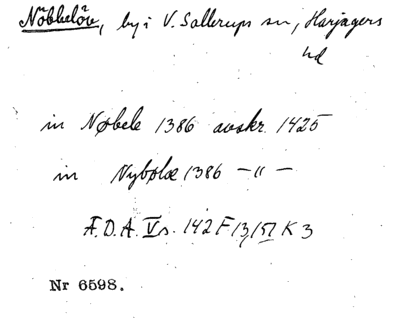 Nöbbelöv, by i V. Sallerups sn, Harjagers
hd
in Nøbele 1386 avskr. 1425
in Nybølæ 1386 – " –
Æ.D.A. V s. 142 F 13, K 3
Nr 6598.